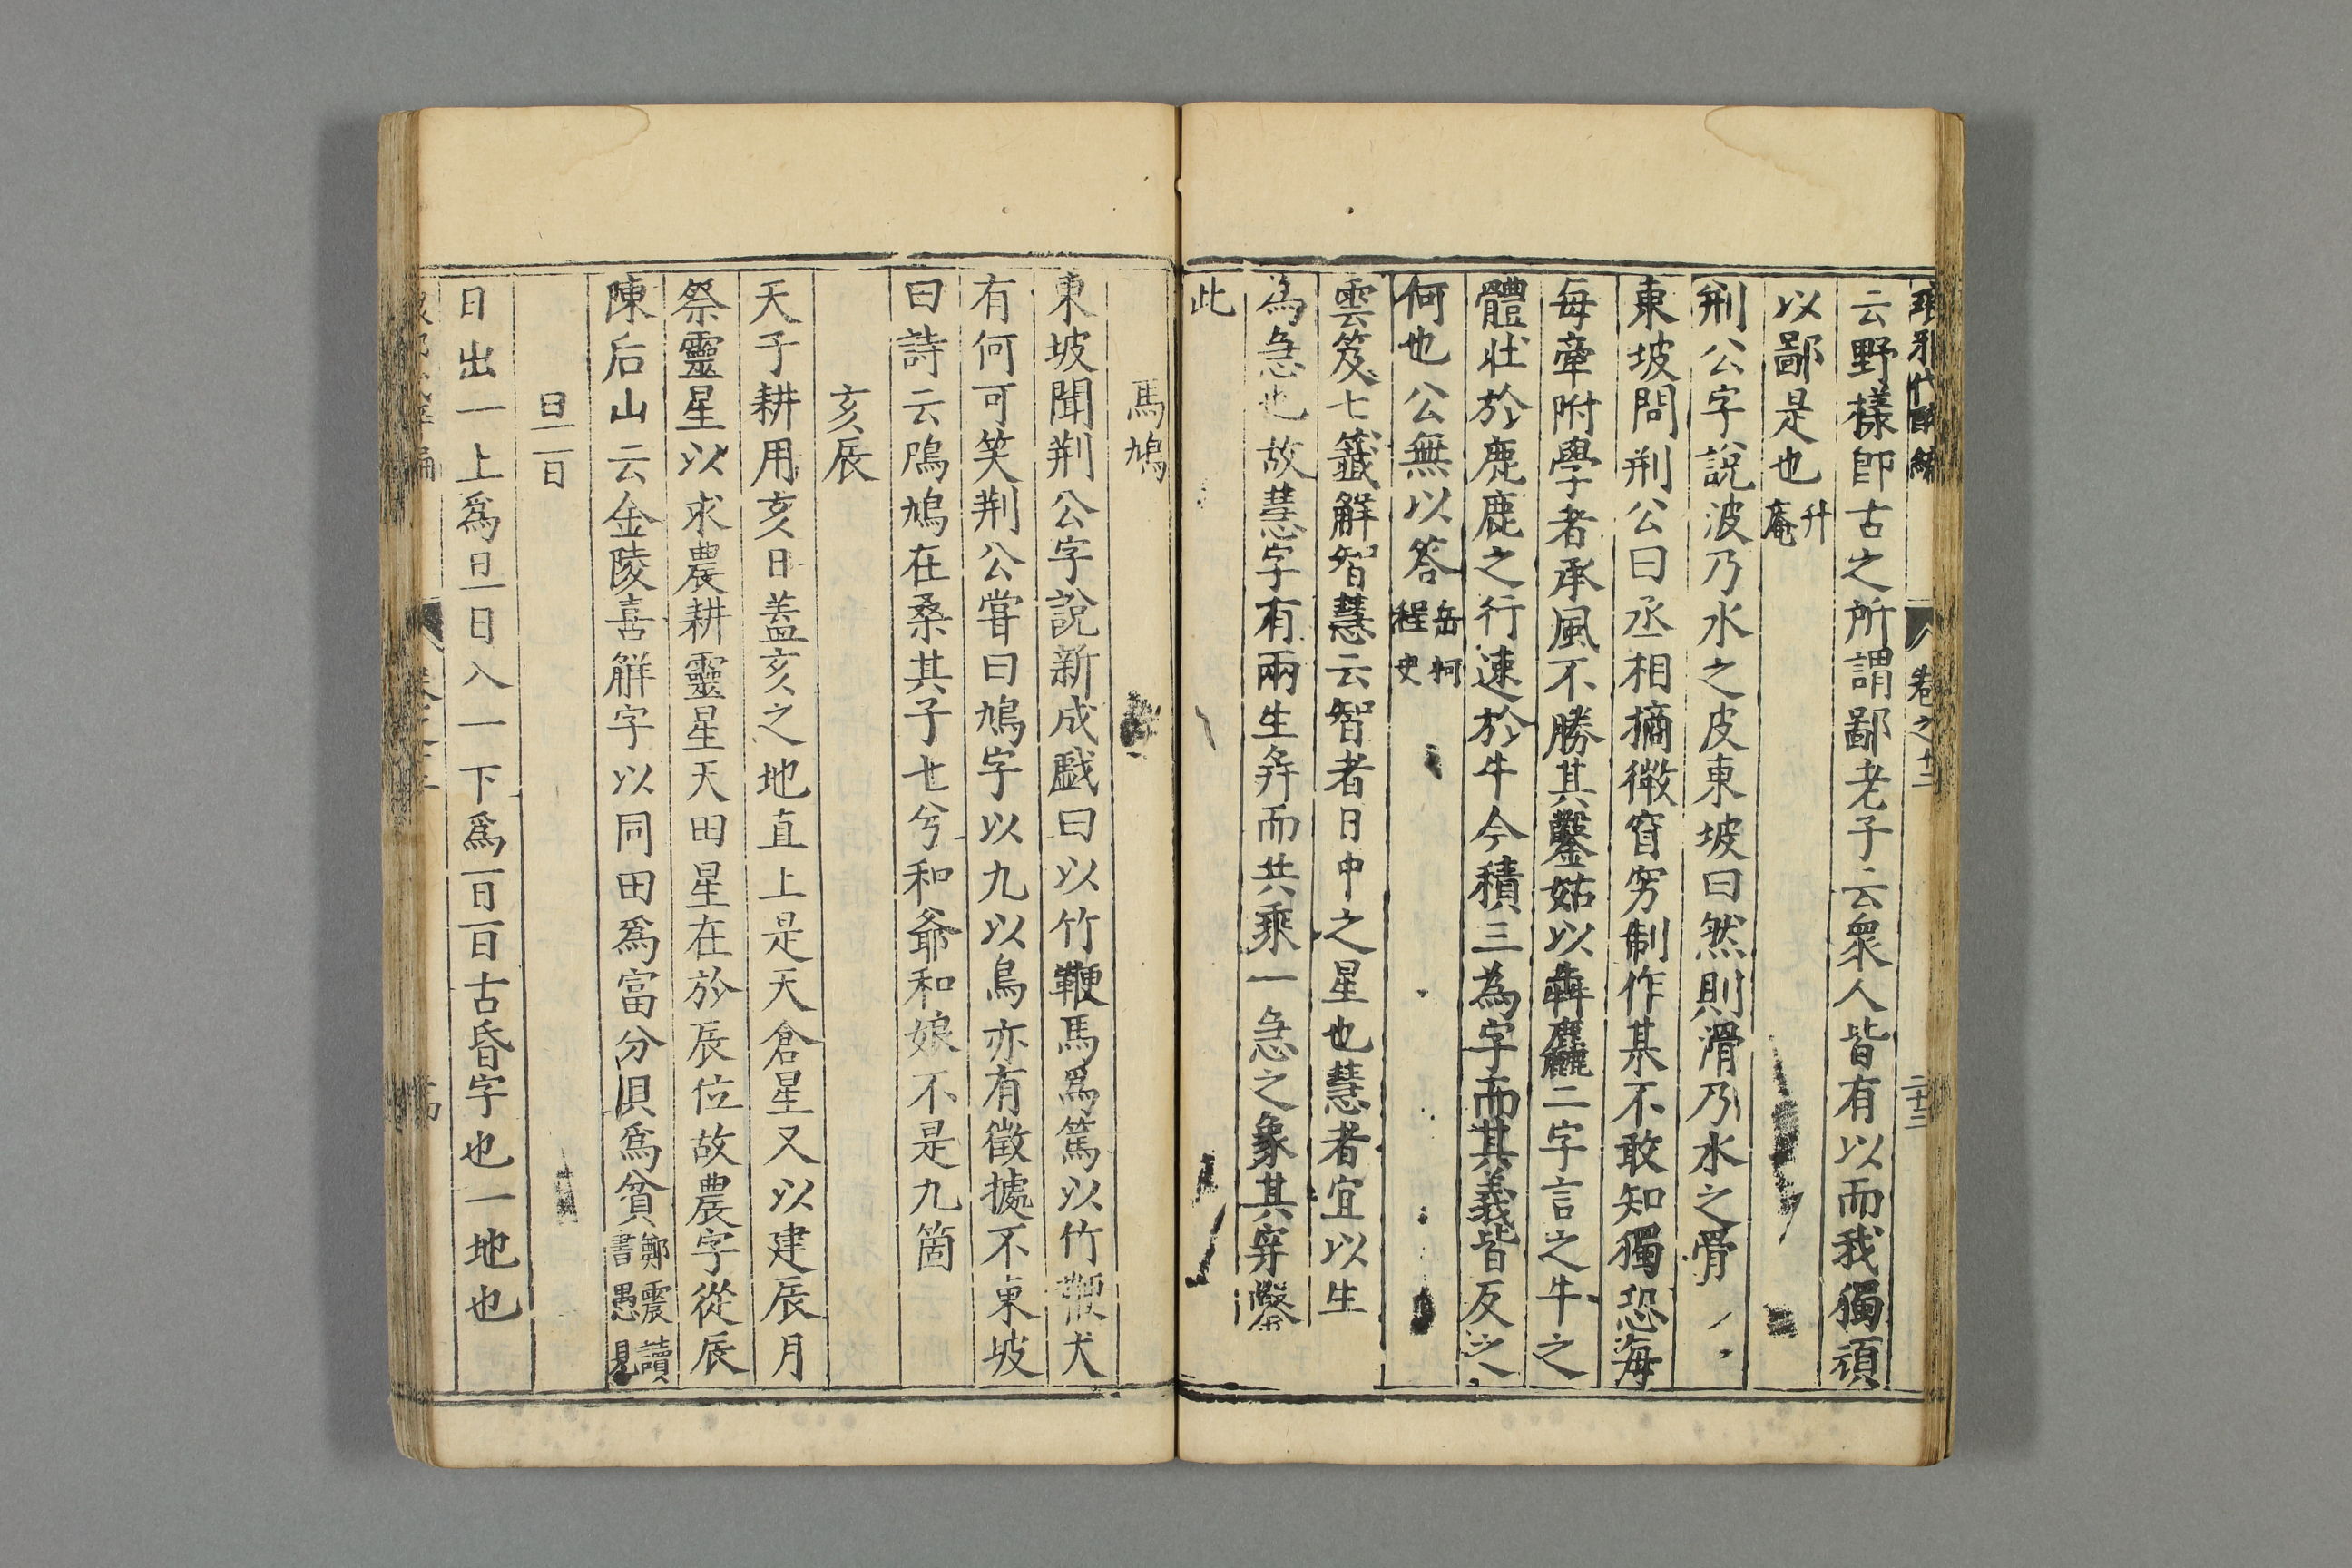 瑯邪代醉編 卷之廿二 二十三
云野樣卽古之所謂鄙老子云衆人皆有以而我獨頑
以鄙是也升庵
荆公字說波乃水之皮東坡曰然則滑乃水之骨
東坡問荆公曰丞相摘微窅窮制作某不敢知獨恐海
每牽附學者承風不勝其鑿姑以犇麤二字言之牛之
體壯於鹿鹿之行速於牛今積三為字而其義皆反之
何也公無以答岳柯程史
雲笈七籤解智慧云智者日中之星也慧者宜以生
為急也故慧字有兩生并而共乘一急之象其穿鑿
此
馬鳩
東坡聞荆公字說新成戲曰以竹鞭馬爲篤以竹鞭犬
有何可笑荆公嘗曰鳩字以九以鳥亦有徵據不東坡
曰詩云鳲鳩在桑其子七兮和爺和娘不是九箇
亥辰
天子耕用亥日蓋亥之地直上是天倉星又以建辰月
祭靈星以求農耕靈星天田星在於辰位故農字從辰
陳后山云金陵喜觧字以同田爲富分貝爲貧鄭震讀書愚見
旦𠀾
日出一上爲旦日入一下爲𠀾𠀾古昏字也一地也